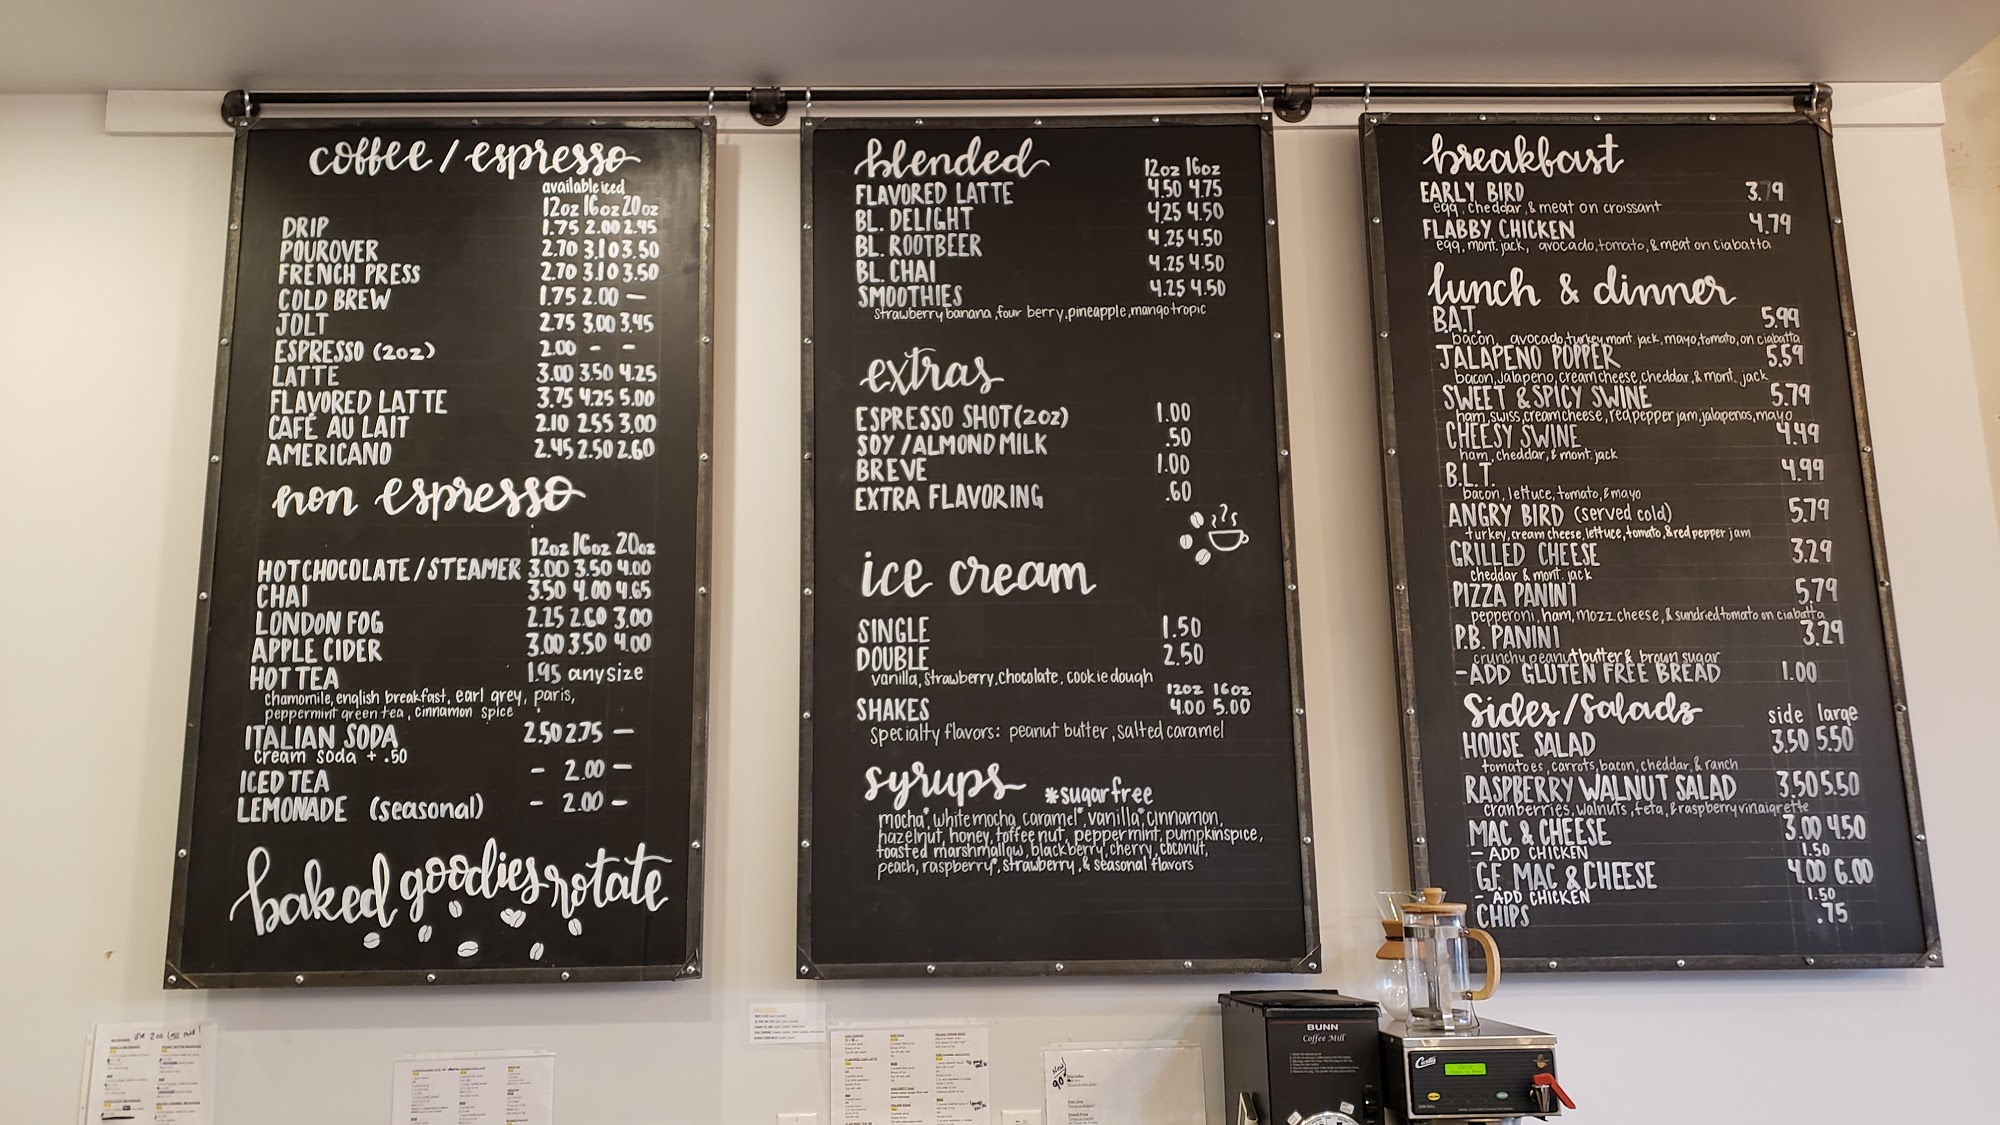 coffee / espresso
available iced
12oz 16oz 20oz
DRIP 1.75 2.00 2.45
POUROVER 2.70 3.10 3.50
FRENCH PRESS 2.70 3.10 3.50
COLD BREW 1.75 2.00 —
JOLT 2.75 3.00 3.45
ESPRESSO (2oz) 2.00 - -
LATTE 3.00 3.50 4.25
FLAVORED LATTE 3.75 4.25 5.00
CAFÉ AU LAIT 2.10 2.55 3.00
AMERICANO 2.45 2.50 2.60
non espresso
12oz 16oz 20oz
HOT CHOCOLATE / STEAMER 3.00 3.50 4.00
CHAI 3.50 4.00 4.65
LONDON FOG 2.25 2.60 3.00
APPLE CIDER 3.00 3.50 4.00
HOT TEA 1.95 any size
chamomile, english breakfast, earl grey, paris,
peppermint green tea, cinnamon spice
ITALIAN SODA 2.50 2.75 —
cream soda + .50
ICED TEA - 2.00 —
LEMONADE (seasonal) - 2.00 —
baked goodies rotate
blended
12oz 16oz
FLAVORED LATTE 4.50 4.75
BL. DELIGHT 4.25 4.50
BL. ROOTBEER 4.25 4.50
BL. CHAI 4.25 4.50
SMOOTHIES 4.25 4.50
strawberry banana, four berry, pineapple, mango tropic
extras
ESPRESSO SHOT (2oz) 1.00
SOY / ALMOND MILK .50
BREVE 1.00
EXTRA FLAVORING .60
ice cream
SINGLE 1.50
DOUBLE 2.50
vanilla, strawberry, chocolate, cookie dough
12oz 16oz
SHAKES 4.00 5.00
specialty flavors: peanut butter, salted caramel
syrups *sugar free
mocha*, white mocha, caramel*, vanilla*, cinnamon,
hazelnut, honey, toffee nut, peppermint, pumpkin spice,
toasted marshmallow, blackberry, cherry, coconut,
peach, raspberry*, strawberry, & seasonal flavors
breakfast
EARLY BIRD 3.79
egg, cheddar, & meat on croissant
FLABBY CHICKEN 4.79
egg, mont. jack, avocado, tomato, & meat on ciabatta
lunch & dinner
B.A.T. 5.99
bacon, avocado, turkey, mont. jack, mayo, tomato, on ciabatta
JALAPENO POPPER 5.59
bacon, jalapeno, cream cheese, cheddar, & mont. jack
SWEET & SPICY SWINE 5.79
ham, swiss, cream cheese, red pepper jam, jalapenos, mayo
CHEESY SWINE 4.49
ham, cheddar, & mont. jack
B.L.T. 4.99
bacon, lettuce, tomato, & mayo
ANGRY BIRD (served cold) 5.79
turkey, cream cheese, lettuce, tomato, & red pepper jam
GRILLED CHEESE 3.29
cheddar & mont. jack
PIZZA PANINI 5.79
pepperoni, ham, mozz cheese, & sundried tomato on ciabatta
P.B. PANINI 3.29
crunchy peanut butter & brown sugar
-ADD GLUTEN FREE BREAD 1.00
sides/salads side large
HOUSE SALAD 3.50 5.50
tomatoes, carrots, bacon, cheddar, & ranch
RASPBERRY WALNUT SALAD 3.50 5.50
cranberries, walnuts, feta, & raspberry vinaigrette
MAC & CHEESE 3.00 4.50
- ADD CHICKEN 1.50
G.F. MAC & CHEESE 4.00 6.00
- ADD CHICKEN 1.50
CHIPS .75
BUNN
Coffee Mill
Curtis